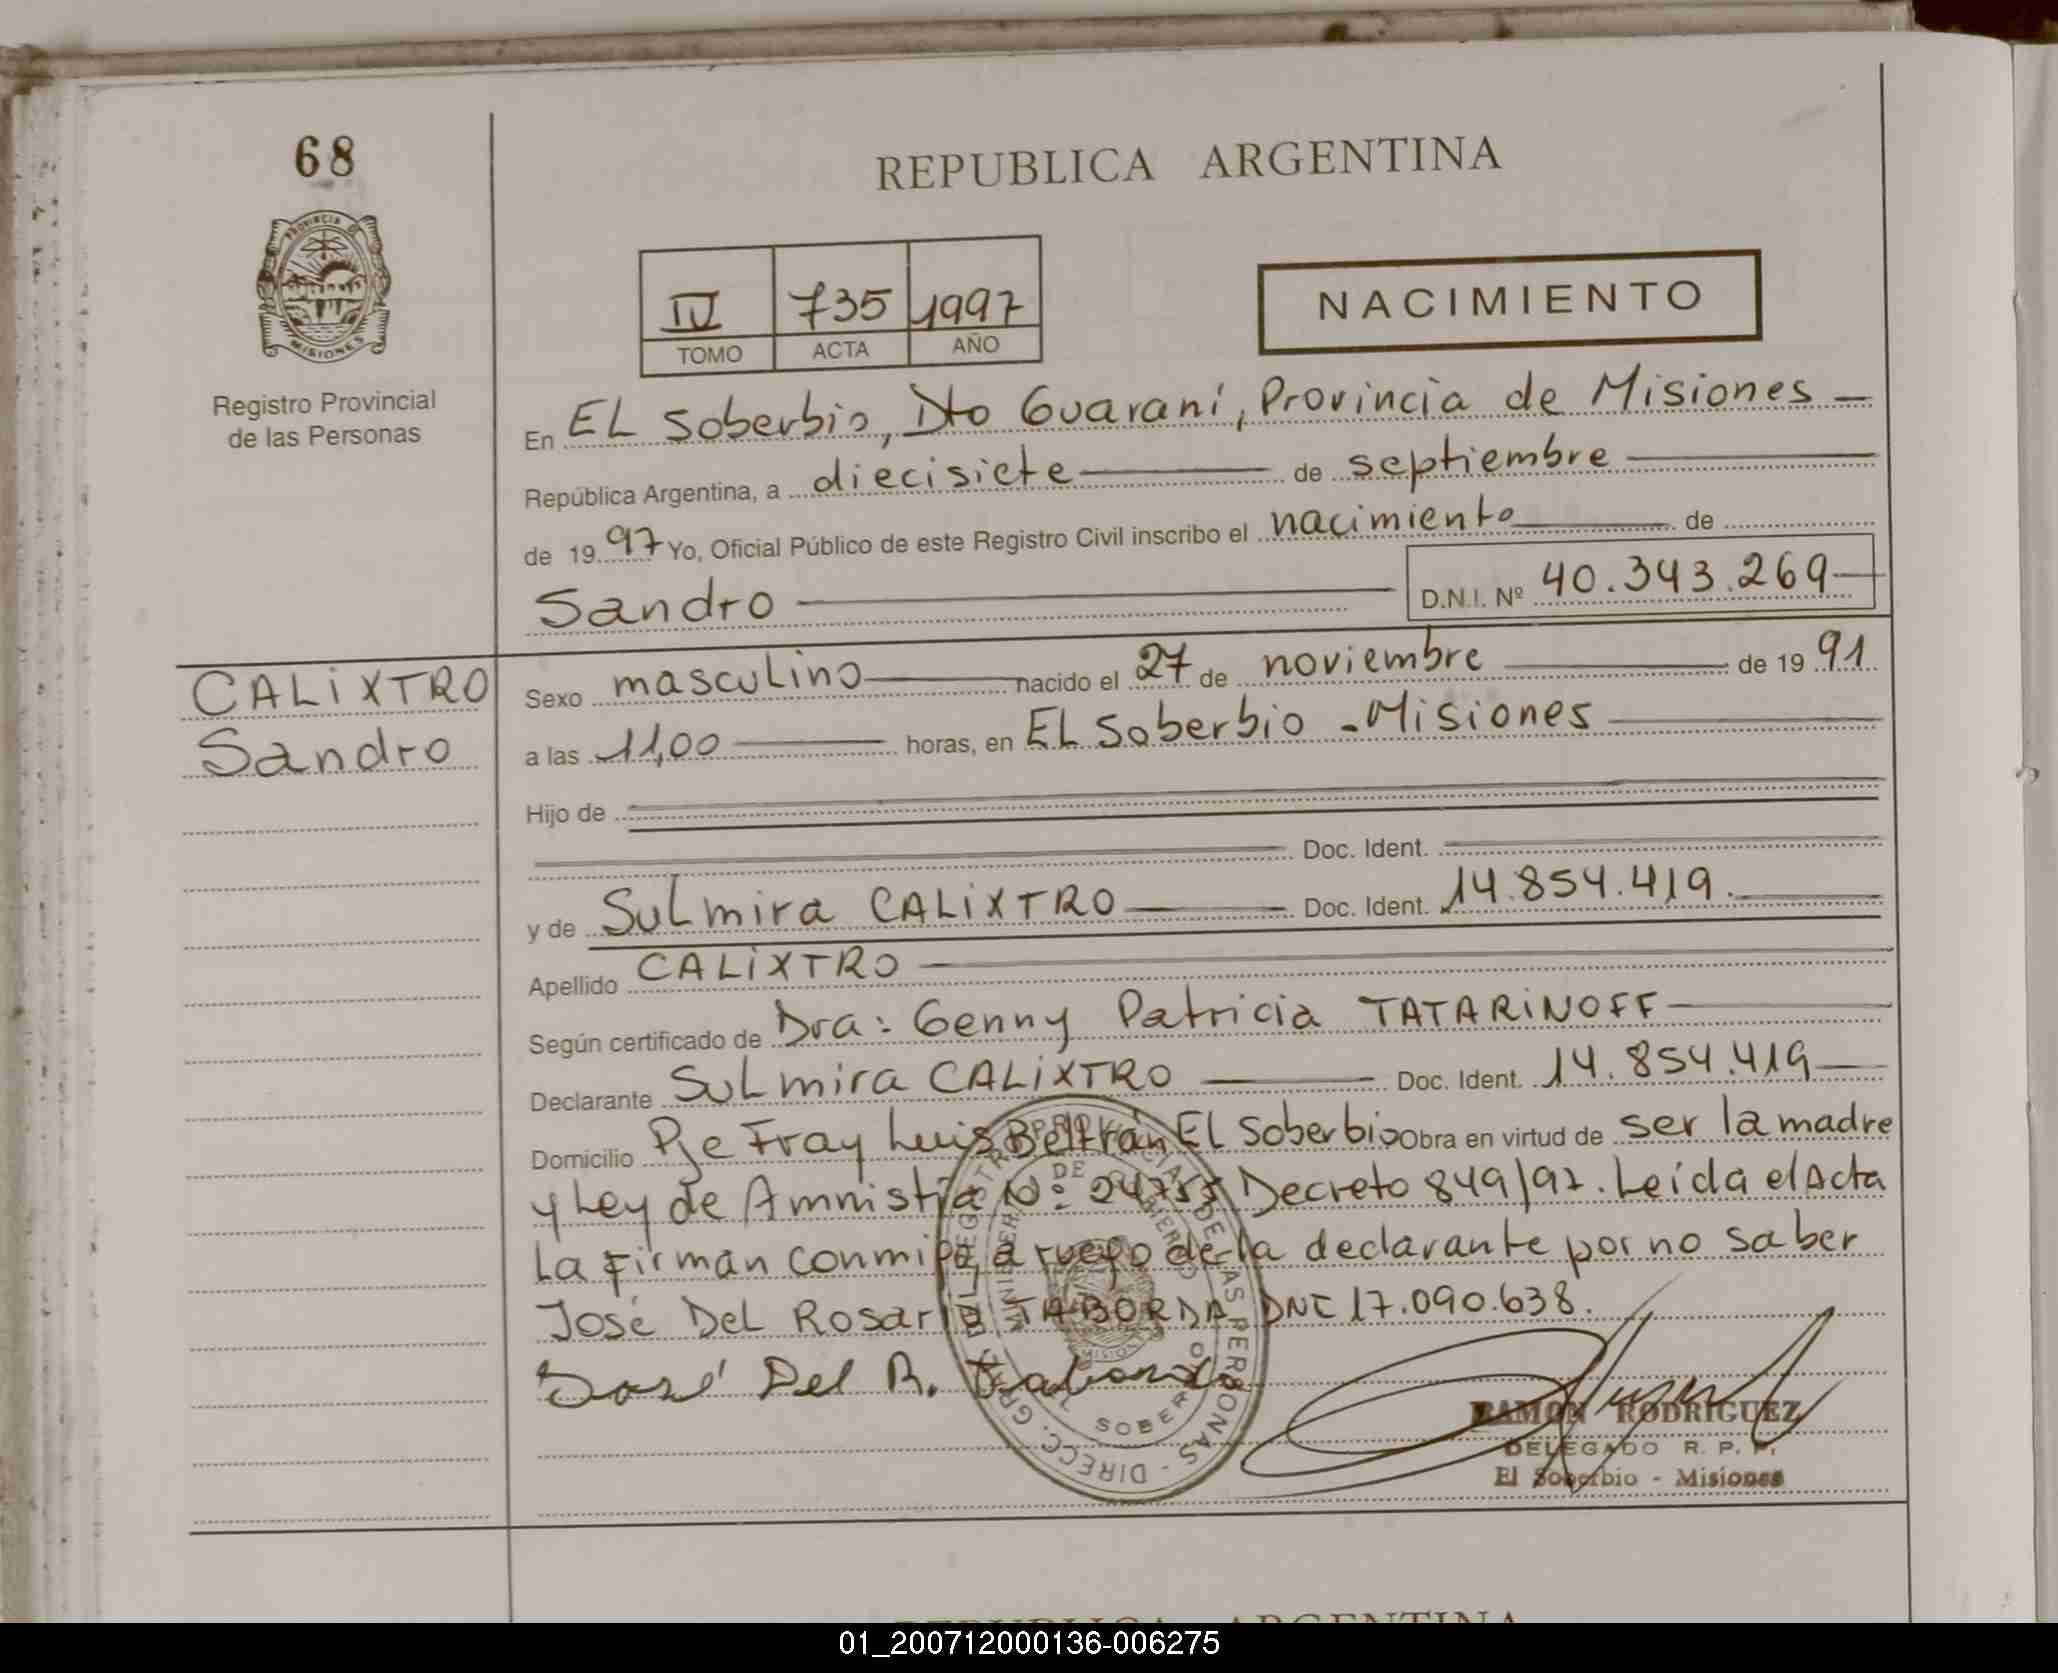 68
REPUBLICA ARGENTINA
PROVINCIA DE
MISIONES
Registro Provincial
de las Personas
IV 735 1997
TOMO ACTA AÑO
NACIMIENTO
En EL Soberbio, Dto Guaraní, Provincia de Misiones —
República Argentina, a diecisiete de septiembre
de 1997 Yo, Oficial Público de este Registro Civil inscribo el nacimiento de
Sandro D.N.I. Nº 40.343.269
CALiXTRO
Sandro
Sexo masculino nacido el 27 de noviembre de 1991
a las 11,00 horas, en EL Soberbio - Misiones
Hijo de
Doc. Ident.
y de Sulmira CALiXTRO Doc. Ident. 14.854.419.
Apellido CALiXTRO
Según certificado de Dra: Genny Patricia TATARiNOFF
Declarante Sulmira CALiXTRO Doc. Ident. 14.854.419
Domicilio Pje Fray Luis Beltrán EL Soberbio Obra en virtud de ser la madre
y Ley de Amnistía Nº 24755 Decreto 849/97. Leída el Acta
La firman conmigo, a ruego de la declarante por no saber
José Del Rosario TABORDA DNI 17.090.638.
José Del R. Taborda
RAMON RODRIGUEZ
DELEGADO R. P. P.
El Soberbio - Misiones
REPUBLICA ARGENTINA
01_200712000136-006275